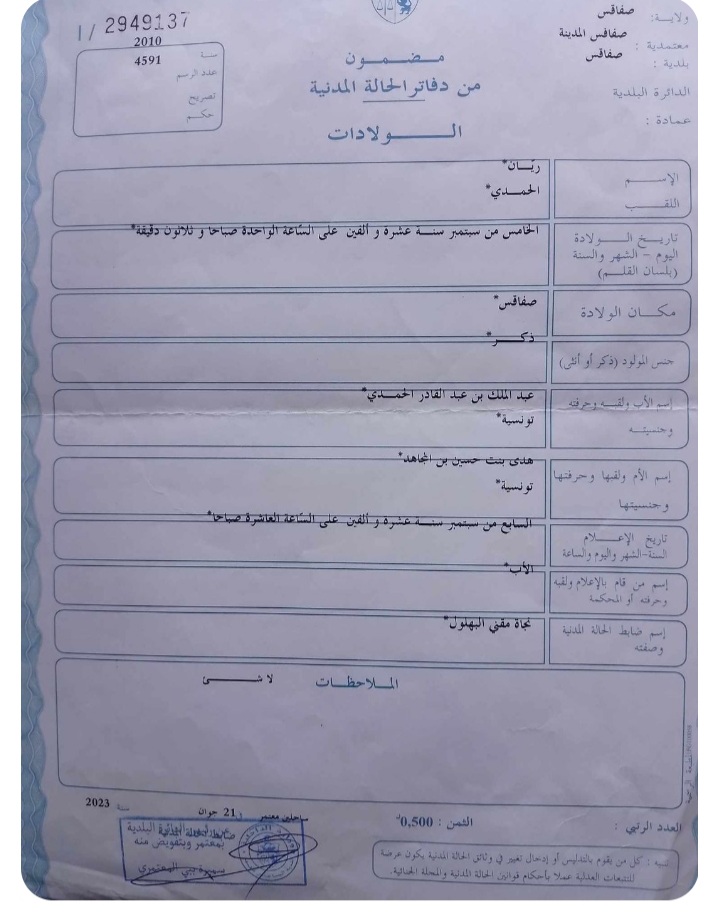 ولاية: صفاقس
معتمدية : صفاقس المدينة
بلدية : صفاقس
الدائرة البلدية
عمادة :
I/ 2949137
سنة 2010
عدد الرسم 4591
تصريح
حكم
مضمون
من دفاتر الحالة المدنية
الولادات
الإسم ريّان*
اللقب الحمدي*
تاريخ الولادة الخامس من سبتمبر سنة عشرة و ألفين على السّاعة الواحدة صباحا و ثلاثون دقيقة*
اليوم - الشهر والسنة
(بلسان القلم)
مكان الولادة صفاقس*
جنس المولود (ذكر أو أنثى) ذكر*
إسم الأب ولقبه وحرفته عبد الملك بن عبد القادر الحمدي*
وجنسيته تونسية*
إسم الأم ولقبها وحرفتها هدى بنت حسين بن المجاهد*
وجنسيتها تونسية*
تاريخ الإعلام السابع من سبتمبر سنة عشرة و ألفين على السّاعة العاشرة صباحا*
السنة-الشهر واليوم والساعة
إسم من قام بالإعلام ولقبه الأب*
وحرفته أو المحكمة
إسم ضابط الحالة المدنية نجاة مقني البهلول*
وصفته
الملاحظات لا شئ
العدد الرتبي : الثمن : 0,500د
ساحلين معتمر 21 جوان سنة 2023
ضابط الحالة المدنية
الدائرة البلدية
لمعتمر وبتفويض منه
تنبيه : كل من يقوم بالتدليس أو إدخال تغيير في وثائق الحالة المدنية يكون عرضة
للتتبعات العدلية عملا بأحكام قوانين الحالة المدنية والمجلة الجنائية.